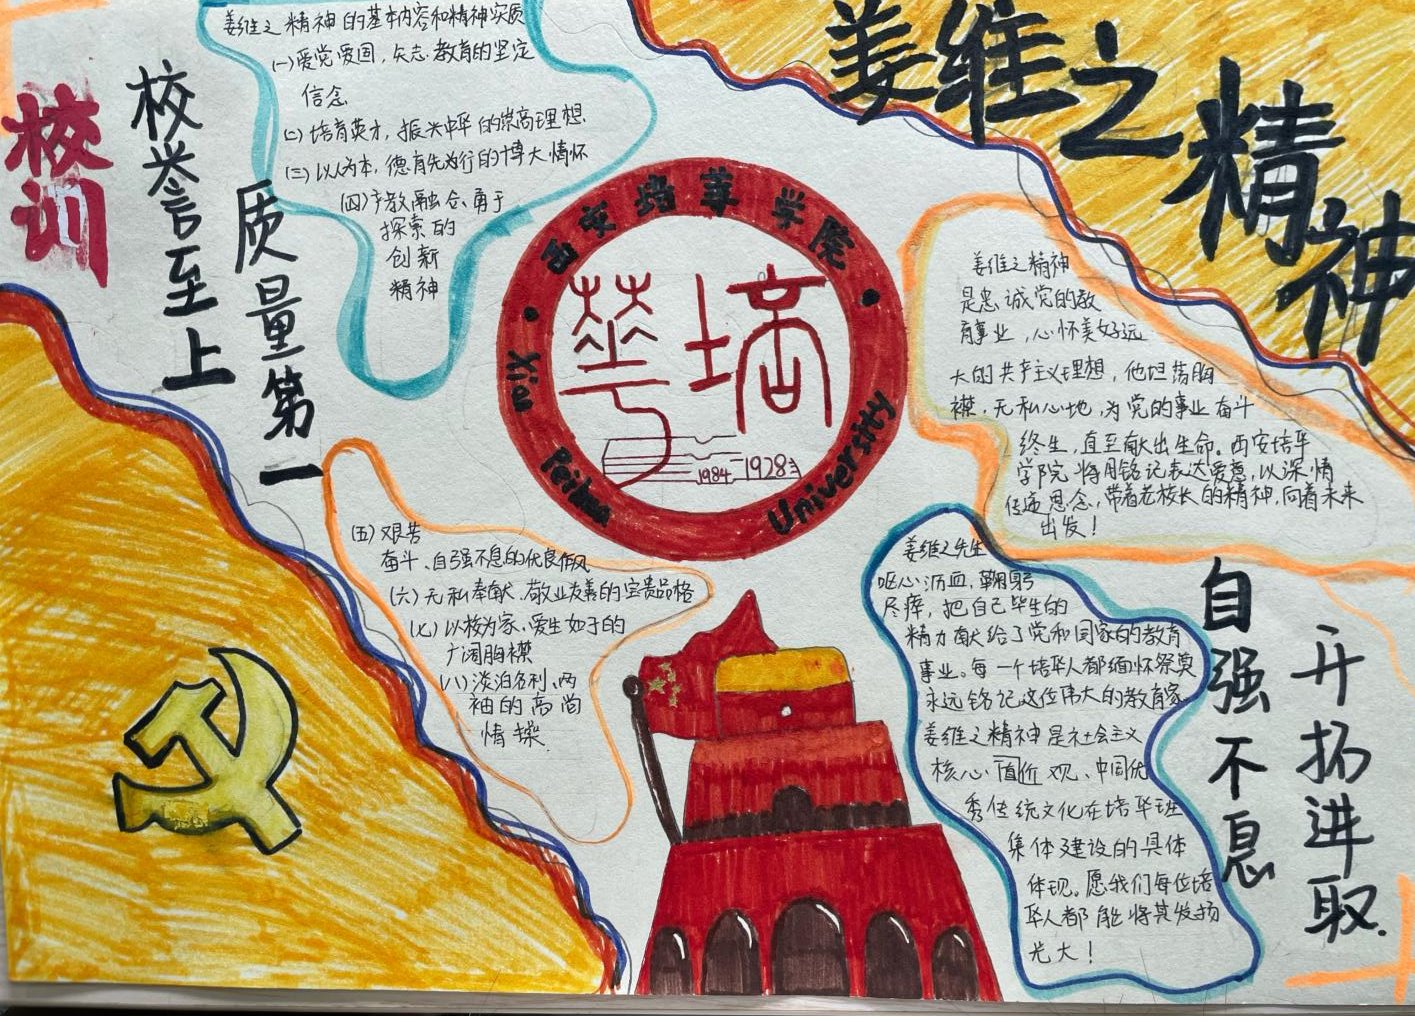 姜维之精神
校训
校誉至上
质量第一
姜维之精神的基本内容和精神实质
(一)爱党爱国，矢志教育的坚定
信念
(二)培育英才，振兴中华的崇高理想
(三)以人为本，德育先为行的博大情怀
(四)产教融合、勇于
探索的
创新
精神
西安培华学院
Xi'an Peihua University
華培
1984-1928
姜维之精神
是忠诚党的教
育事业，心怀美好远
大的共产主义理想，他坦荡胸
襟，无私心地，为党的事业奋斗
终生，直至献出生命。西安培华
学院将用铭记表达爱意，以深情
传递思念，带着老校长的精神，向着未来
出发！
(五)艰苦
奋斗、自强不息的优良作风
(六)无私奉献、敬业友善的宝贵品格
(七)以校为家、爱生如子的
广阔胸襟
(八)淡泊名利、两
袖的高尚
情操.
姜维之先生
呕心沥血，鞠躬
尽瘁，把自己毕生的
精力献给了党和国家的教育
事业。每一个培华人都缅怀祭奠
永远铭记这位伟大的教育家
姜维之精神是社会主义
核心价值观、中国优
秀传统文化在培华班
集体建设的具体
体现。愿我们每位培
华人都能将其发扬
光大！
自强不息
开拓进取.